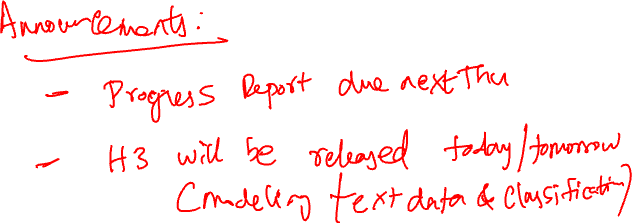 Announcements:
- Progress Report due next Thu
- H3 will be released today/tomorrow
(modeling text data & classification)